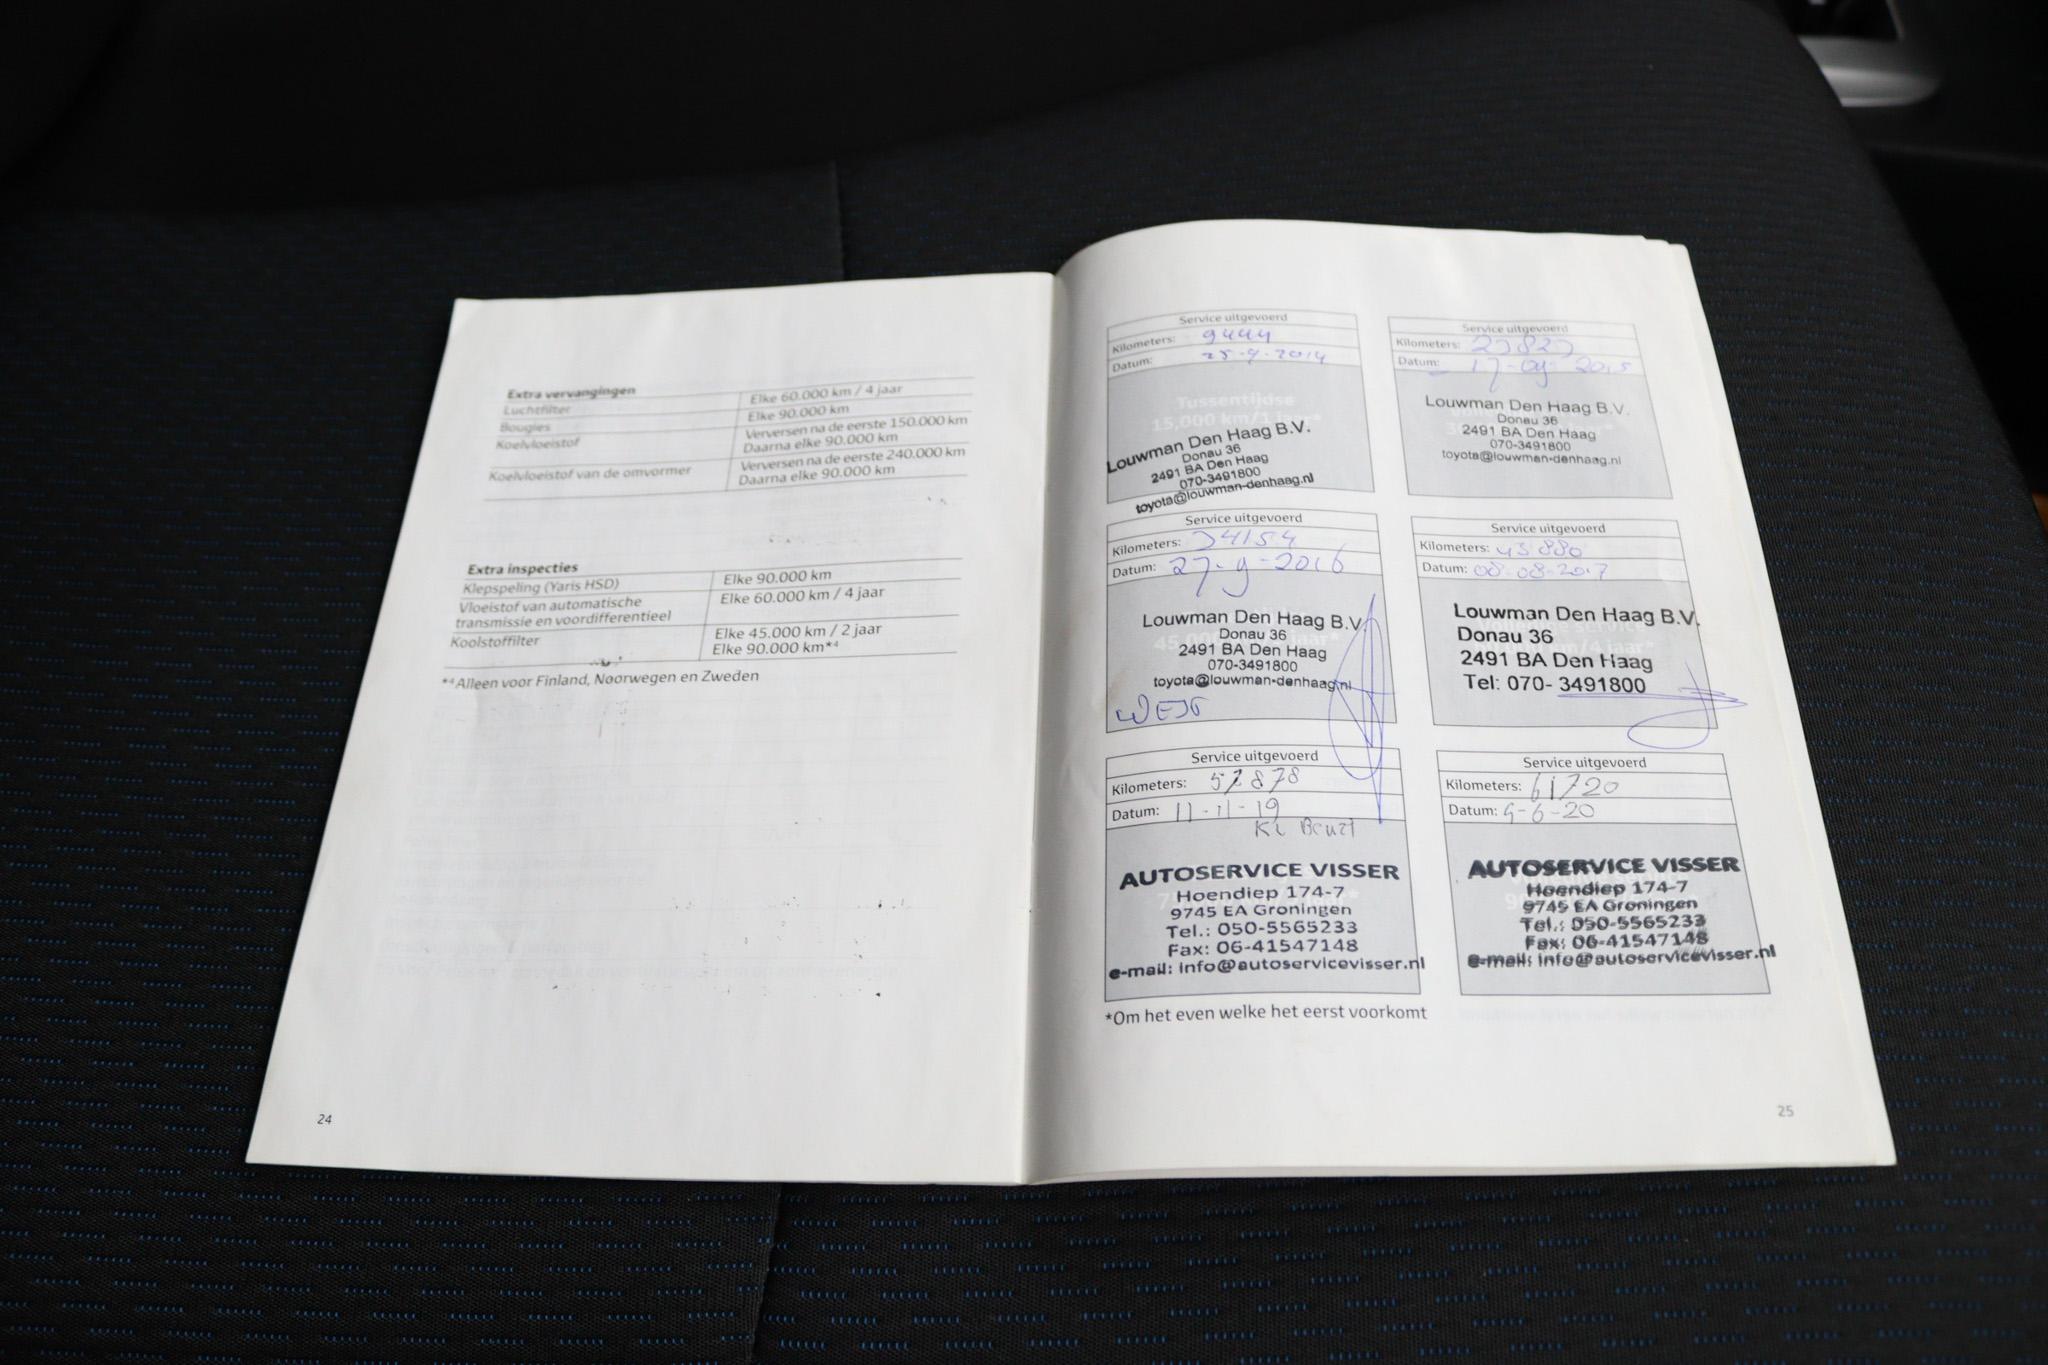 Extra vervangingen
Luchtfilter Elke 60.000 km / 4 jaar
Bougies Elke 90.000 km
Koelvloeistof Verversen na de eerste 150.000 km
Daarna elke 90.000 km
Koelvloeistof van de omvormer Verversen na de eerste 240.000 km
Daarna elke 90.000 km
Extra inspecties
Klepspeling (Yaris HSD) Elke 90.000 km
Vloeistof van automatische Elke 60.000 km / 4 jaar
transmissie en voordifferentieel
Koolstoffilter Elke 45.000 km / 2 jaar
Elke 90.000 km*⁴
*⁴Alleen voor Finland, Noorwegen en Zweden
24
Service uitgevoerd
Kilometers: 9444
Datum: 25-9-2014
Tussentijdse
15,000 km/1 jaar*
Louwman Den Haag B.V.
Donau 36
2491 BA Den Haag
070-3491800
toyota@louwman-denhaag.nl
Service uitgevoerd
Kilometers: 23823
Datum: 17-09-2015
Louwman Den Haag B.V.
Donau 36
2491 BA Den Haag
070-3491800
toyota@louwman-denhaag.nl
Service uitgevoerd
Kilometers: 34154
Datum: 27-9-2016
Louwman Den Haag B.V.
Donau 36
2491 BA Den Haag
070-3491800
toyota@louwman-denhaag.nl
Service uitgevoerd
Kilometers: 43880
Datum: 08-08-2017
Louwman Den Haag B.V.
Donau 36
2491 BA Den Haag
Tel: 070- 3491800
Service uitgevoerd
Kilometers: 57878
Datum: 11-11-19
AUTOSERVICE VISSER
Hoendiep 174-7
9745 EA Groningen
Tel.: 050-5565233
Fax: 06-41547148
e-mail: info@autoservicevisser.nl
Service uitgevoerd
Kilometers: 61720
Datum: 5-6-20
AUTOSERVICE VISSER
Hoendiep 174-7
9745 EA Groningen
Tel.: 050-5565233
Fax: 06-41547148
e-mail: info@autoservicevisser.nl
*Om het even welke het eerst voorkomt
25